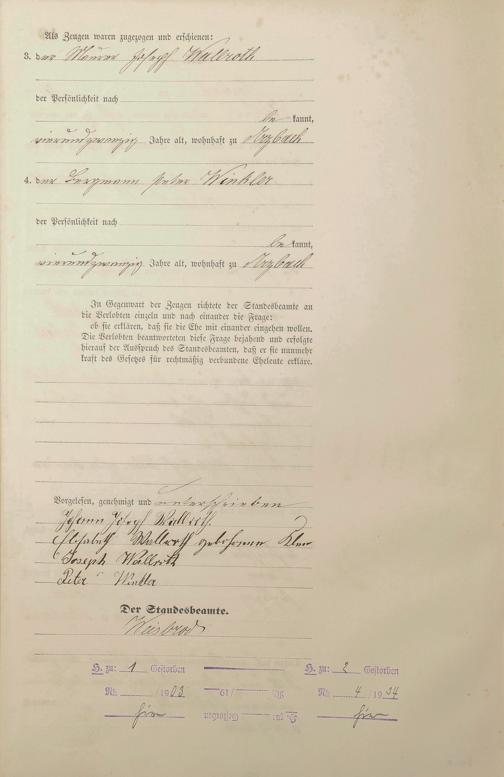 Als Zeugen waren zugezogen und erschienen:
3. der Maurer Joseph Wallroth
der Persönlichkeit nach
be kannt,
vierundzwanzig Jahre alt, wohnhaft zu Arzbach
4. der Bergmann Peter Winkler
der Persönlichkeit nach
be kannt,
vierundzwanzig Jahre alt, wohnhaft zu Arzbach
In Gegenwart der Zeugen richtete der Standesbeamte an
die Verlobten einzeln und nach einander die Frage:
ob sie erklären, daß sie die Ehe mit einander eingehen wollen.
Die Verlobten beantworteten diese Frage bejahend und erfolgte
hierauf der Ausspruch des Standesbeamten, daß er sie nunmehr
kraft des Gesetzes für rechtmäßig verbundene Eheleute erkläre.
Vorgelesen, genehmigt und unterschrieben
Johann Joseph Wallroth.
Elisabeth Wallroth geborene
Joseph Wallroth
Peter Winkler
Der Standesbeamte.
Weisbrod
H. zu: 1 Gestorben
Nr. /1903
hier
H. zu: Gestorben
Nr. /19
H. zu: 2 Gestorben
Nr. 4/1934
hier